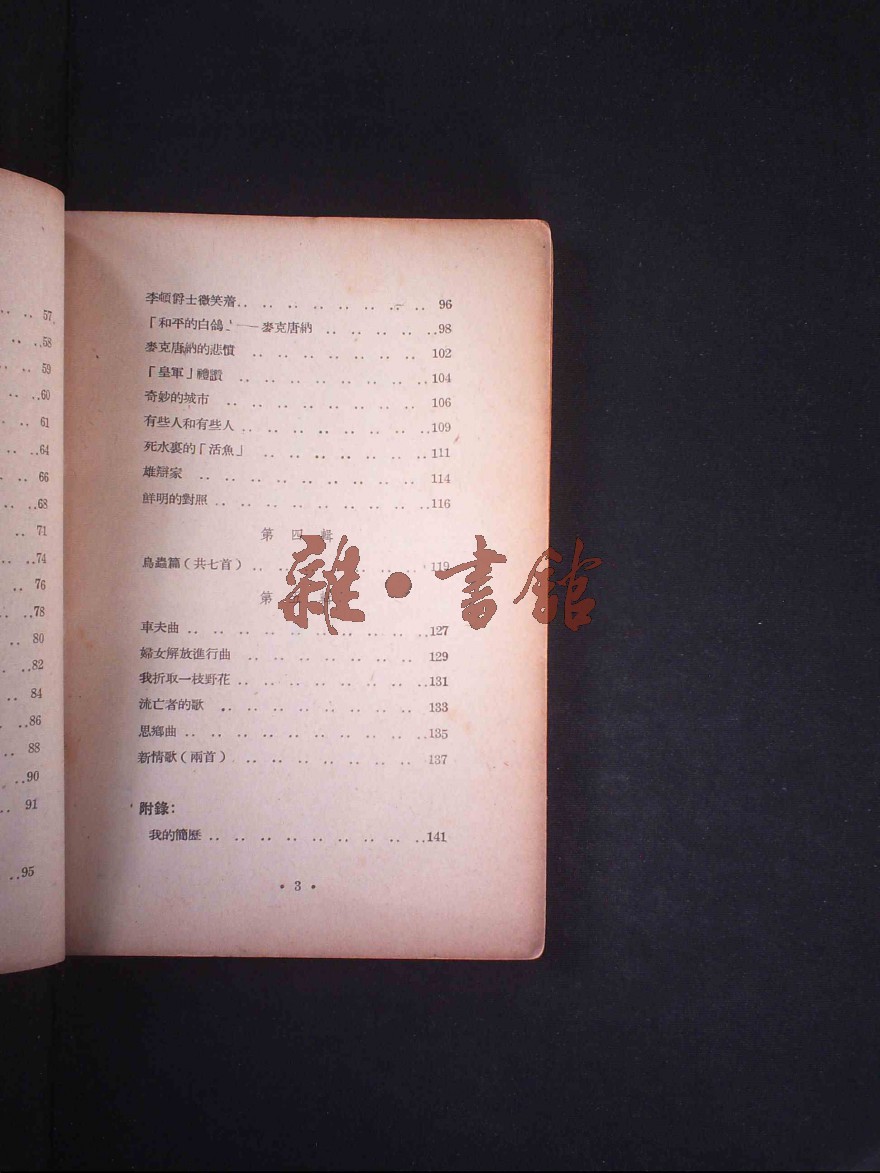 57
58
59
60
61
64
66
68
71
74
76
78
80
82
84
86
88
90
91
95
李頓爵士微笑着.. .. .. .. .. .. .. .. 96
「和平的白鴿」——麥克唐納 .. .. .. .. ..98
麥克唐納的悲憤 .. .. .. .. .. .. .. 102
「皇軍」禮讚 .. .. .. .. .. .. .. .. 104
奇妙的城市 .. .. .. .. .. .. .. .. 106
有些人和有些人 .. .. .. .. .. .. .. ..109
死水裏的「活魚」 .. .. .. .. .. .. .. 111
雄辯家 .. .. .. .. .. .. .. .. .. 114
鮮明的對照 .. .. .. .. .. .. .. .. ..116
第四輯
鳥蟲篇(共七首) .. .. .. .. .. .. .. 119
第
車夫曲 .. .. .. .. .. .. .. .. .. ..127
婦女解放進行曲 .. .. .. .. .. .. .. ..129
我折取一枝野花.. .. .. .. .. .. .. ..131
流亡者的歌 .. .. .. .. .. .. .. .. 133
思鄉曲 .. .. .. .. .. .. .. .. .. ..135
新情歌(兩首) .. .. .. .. .. .. .. 137
附錄:
我的簡歷 .. .. .. .. .. .. .. .. ..141
• 3 •
雜•書館